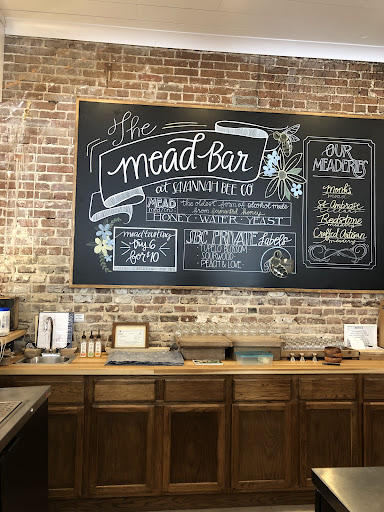 The
Mead Bar
at SAVANNAH BEE CO
MEAD the oldest form of alcohol made
from fermented honey
HONEY + WATER + YEAST
mead tasting
try 6
for $10
SBC PRIVATE Labels
TUPELO BLOSSOM
SOURWOOD
PEACH & LOVE
OUR
MEADERIES
Monk's
St. Ambrose
Redstone
Crafted Artisan
meadery